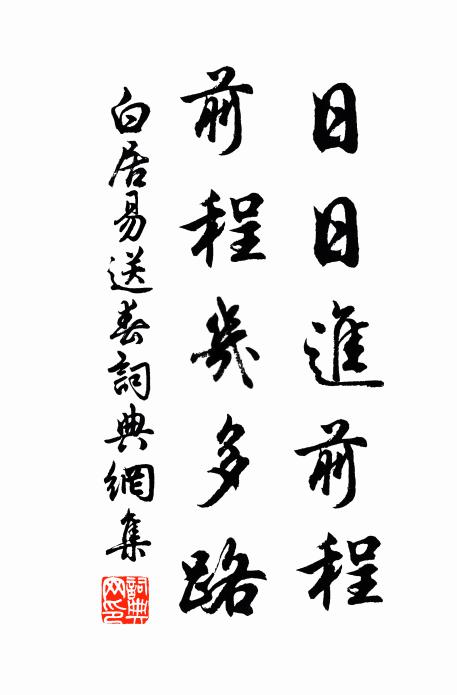 日日進前程
前程幾多路
白居易送春詞典網集
詞典網印